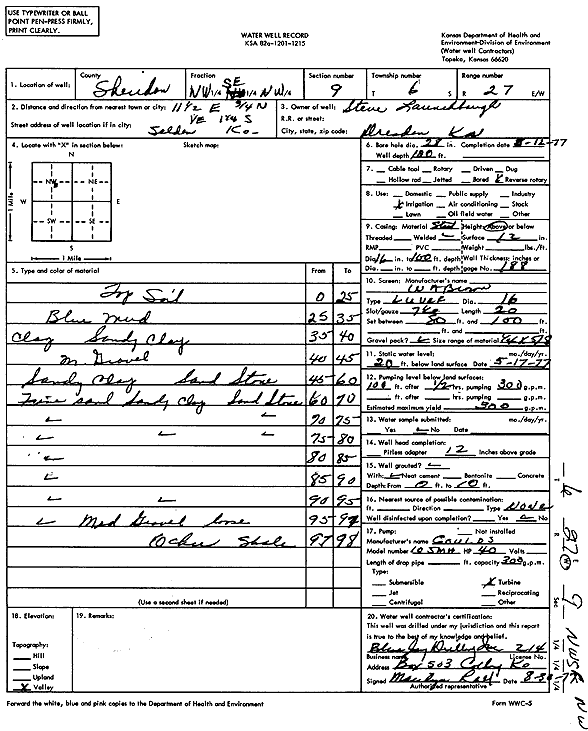 USE TYPEWRITER OR BALL
POINT PEN-PRESS FIRMLY,
PRINT CLEARLY.
WATER WELL RECORD
KSA 82a-1201-1215
Kansas Department of Health and
Environment-Division of Environment
(Water well Contractors)
Topeka, Kansas 66620
1. Location of well: County Sheridan Fraction NW 1/4 SE NW 1/4 NW 1/4 Section number 9 Township number T 6 S Range number R 27 E/W
2. Distance and direction from nearest town or city: 11 1/2 E 3/4 N
1/4 E 1 3/4 S
Street address of well location if in city: Selden Ks-
3. Owner of well: Steve
R.R. or street:
City, state, zip code: Dresden Ks
4. Locate with "X" in section below: Sketch map:
N
NW NE
W E
SW SE
S
1 Mile
1 Mile
5. Type and color of material From To
Top Soil 0 25
Blue Mud 25 35
Clay Sandy Clay 35 40
M. Gravel 40 45
Sandy Clay Sand Stone 45 60
Fine sand Sandy Clay Sand Stone 60 70
70 75
75 80
80 85
85 90
90 95
Med Gravel loose 95 97
Ocher Shale 97 98
(Use a second sheet if needed)
6. Bore hole dia. 28 in. Completion date 5-12-77
Well depth 100 ft.
7. Cable tool Rotary Driven Dug
Hollow rod Jetted Bored Reverse rotary
8. Use: Domestic Public supply Industry
X Irrigation Air conditioning Stock
Lawn Oil field water Other
9. Casing: Material Steel Height: Above or below
Threaded Welded Surface 12 in.
RMP PVC Weight lbs./ft.
Dia. 16 in. to 100 ft. depth Wall Thickness: inches or
Dia. in. to ft. depth gage No. 188
10. Screen: Manufacturer's name
Type Dia. 16
Slot/gauze Length 20
Set between 80 ft. and 100 ft.
ft. and ft.
Gravel pack? Size range of material
11. Static water level: mo./day/yr.
20 ft. below land surface Date 5-17-77
12. Pumping level below land surfaces:
ft. after 1/2 hrs. pumping 300 g.p.m.
ft. after hrs. pumping g.p.m.
Estimated maximum yield 300 g.p.m.
13. Water sample submitted: mo./day/yr.
Yes No Date
14. Well head completion:
Pitless adapter 12 Inches above grade
15. Well grouted?
With: Neat cement Bentonite Concrete
Depth: From 0 ft. to 10 ft.
16. Nearest source of possible contamination:
ft. Direction Type None
Well disinfected upon completion? Yes No
17. Pump: Not installed
Manufacturer's name Goulds
Model number HP 40 Volts
Length of drop pipe ft. capacity 300 g.p.m.
Type:
Submersible X Turbine
Jet Reciprocating
Centrifugal Other
18. Elevation:
Topography:
Hill
Slope
Upland
X Valley
19. Remarks:
20. Water well contractor's certification:
This well was drilled under my jurisdiction and this report
is true to the best of my knowledge and belief.
Drilling Inc 214
Business name License No.
Address Box 503 Colby Ks
Signed Date
Authorized representative
Forward the white, blue and pink copies to the Department of Health and Environment
Form WWC-5
T 6 R 27 W Sec 9 1/4 1/4 1/4